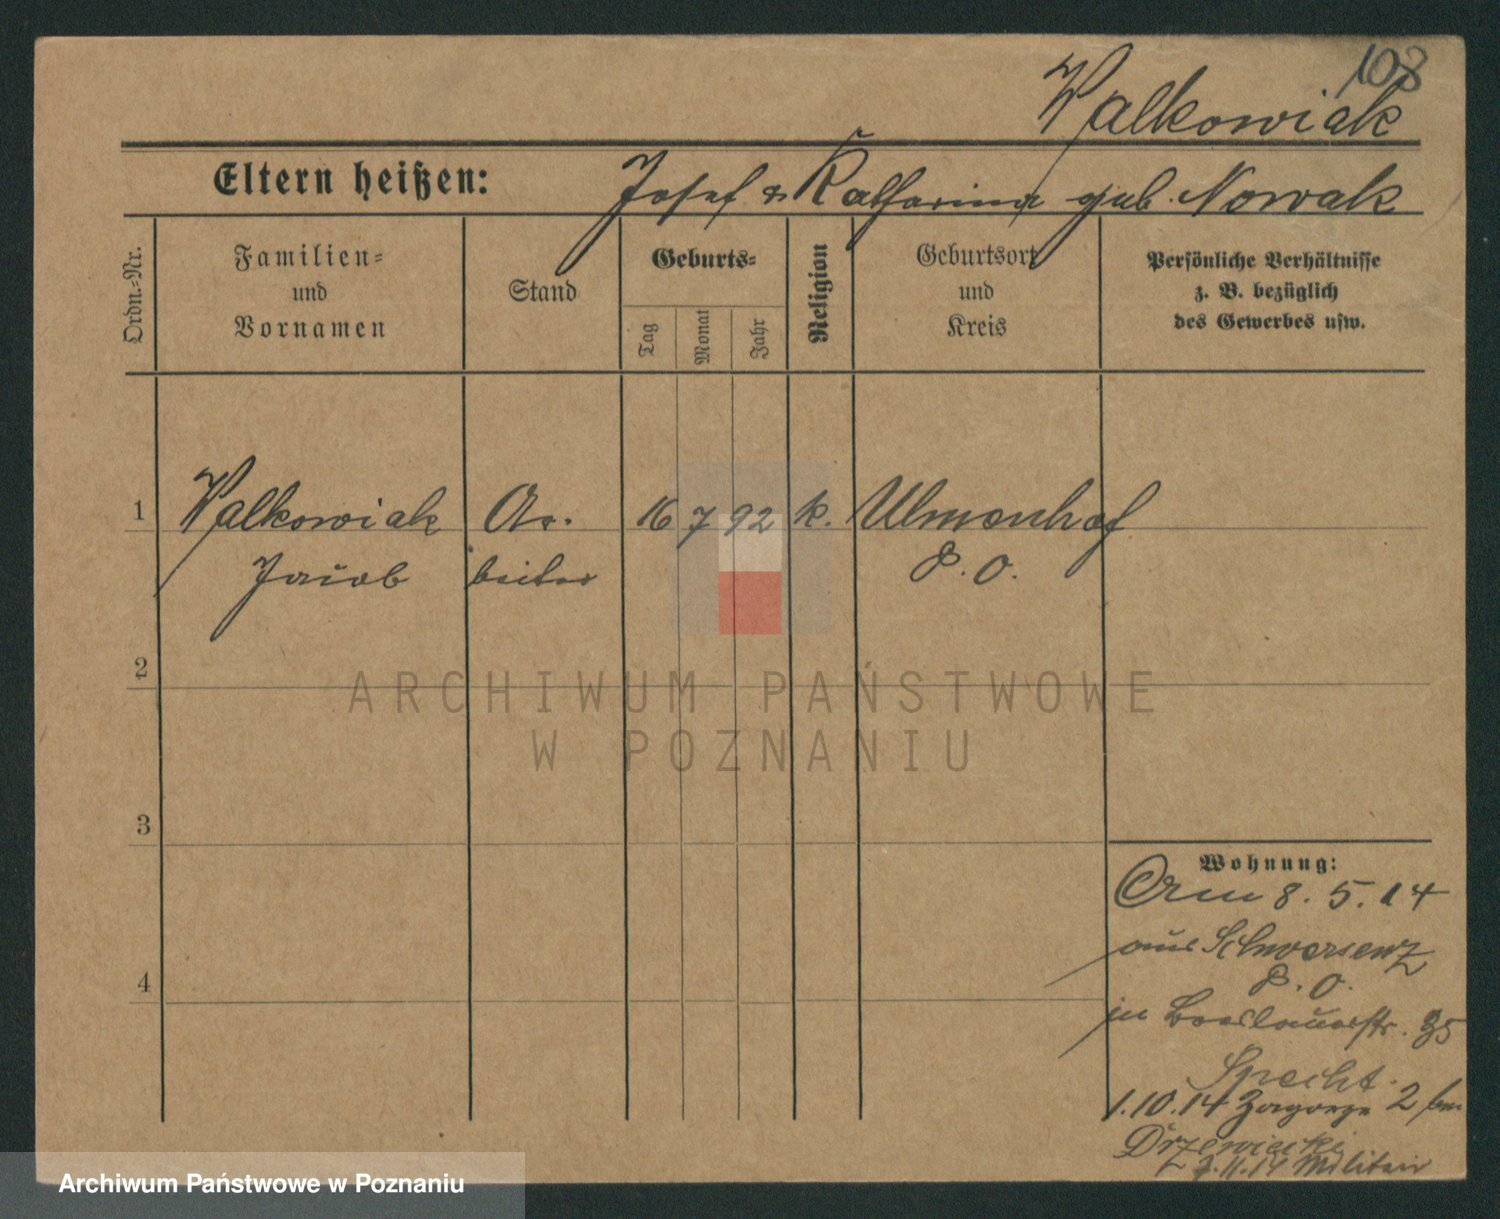 108
Walkowiak
Eltern heißen: Josef & Katharina geb. Nowak
Ordn.-Nr.
Familien-
und
Vornamen
Stand
Geburts-
Tag
Monat
Jahr
Religion
Geburtsort
und
Kreis
Persönliche Verhältnisse
z. B. bezüglich
des Gewerbes usw.
1 Walkowiak Ar- 16 7 92 k. Ulmenhof
Jacob beiter P. O.
2
3
4
ARCHIWUM PAŃSTWOWE
W POZNANIU
Wohnung:
Am 8. 5. 14
aus Schwersenz
P. O.
in Breslauerstr. 35
Specht.
1.10.14 Zagorze 2 bei
Drzewiecki
7.11.14 Militair
Archiwum Państwowe w Poznaniu